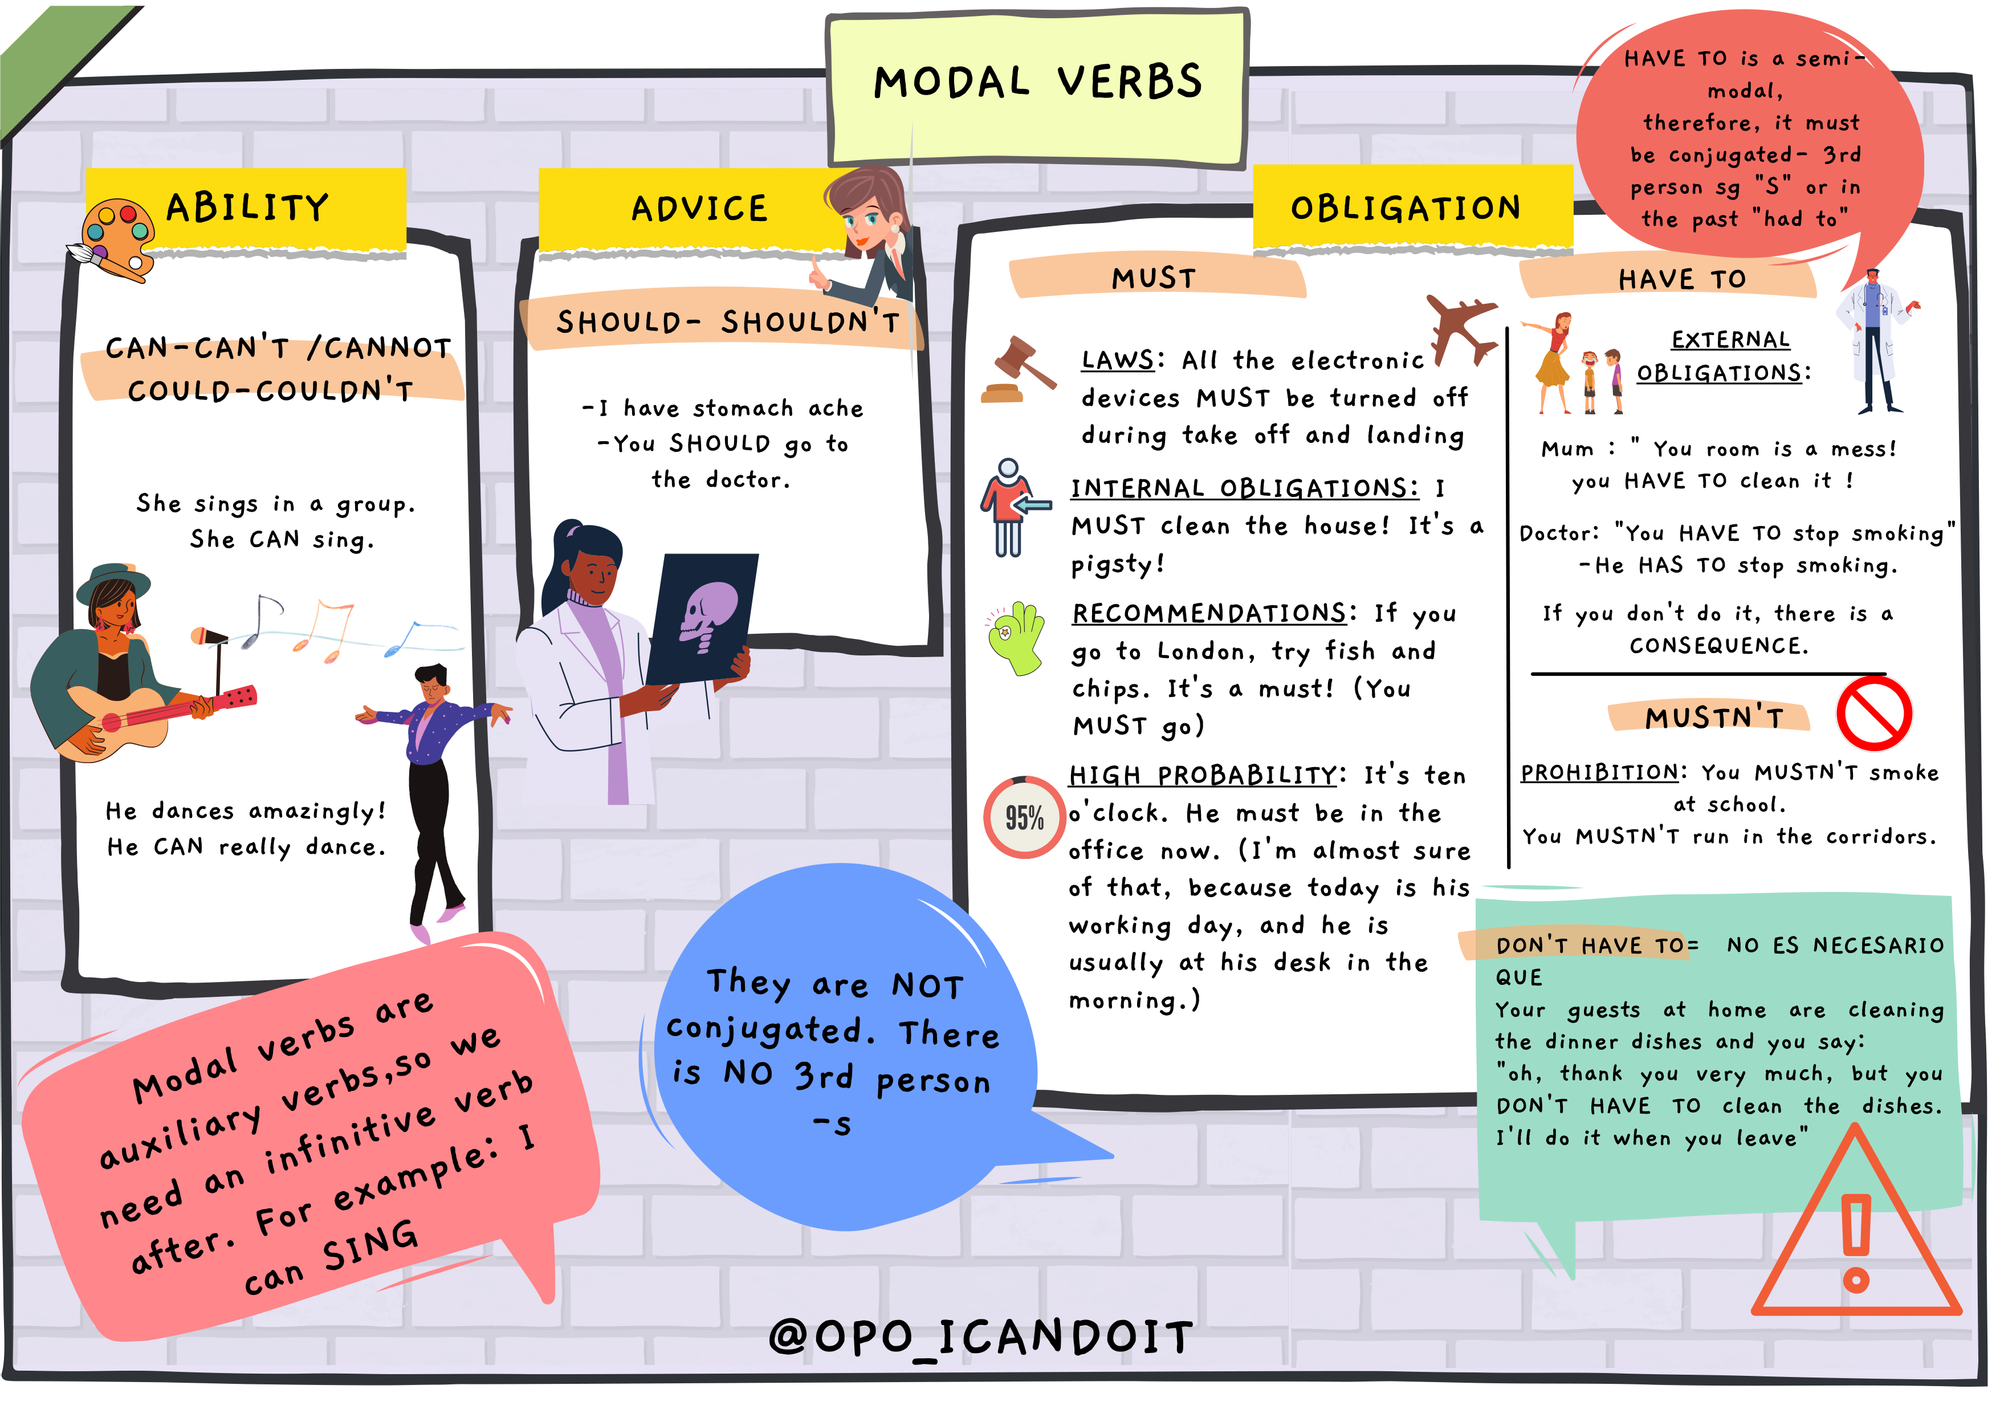 MODAL VERBS
HAVE TO is a semi-
modal,
therefore, it must
be conjugated- 3rd
person sg "S" or in
the past "had to"
ABILITY
CAN-CAN'T /CANNOT
COULD-COULDN'T
She sings in a group.
She CAN sing.
He dances amazingly!
He CAN really dance.
ADVICE
SHOULD- SHOULDN'T
-I have stomach ache
-You SHOULD go to
the doctor.
OBLIGATION
MUST
LAWS: All the electronic
devices MUST be turned off
during take off and landing
INTERNAL OBLIGATIONS: I
MUST clean the house! It's a
pigsty!
RECOMMENDATIONS: If you
go to London, try fish and
chips. It's a must! (You
MUST go)
95%
HIGH PROBABILITY: It's ten
o'clock. He must be in the
office now. (I'm almost sure
of that, because today is his
working day, and he is
usually at his desk in the
morning.)
HAVE TO
EXTERNAL
OBLIGATIONS:
Mum : " You room is a mess!
you HAVE TO clean it !
Doctor: "You HAVE TO stop smoking"
-He HAS TO stop smoking.
If you don't do it, there is a
CONSEQUENCE.
MUSTN'T
PROHIBITION: You MUSTN'T smoke
at school.
You MUSTN'T run in the corridors.
DON'T HAVE TO= NO ES NECESARIO
QUE
Your guests at home are cleaning
the dinner dishes and you say:
"oh, thank you very much, but you
DON'T HAVE TO clean the dishes.
I'll do it when you leave"
Modal verbs are
auxiliary verbs,so we
need an infinitive verb
after. For example: I
can SING
They are NOT
conjugated. There
is NO 3rd person
-s
@OPO_ICANDOIT